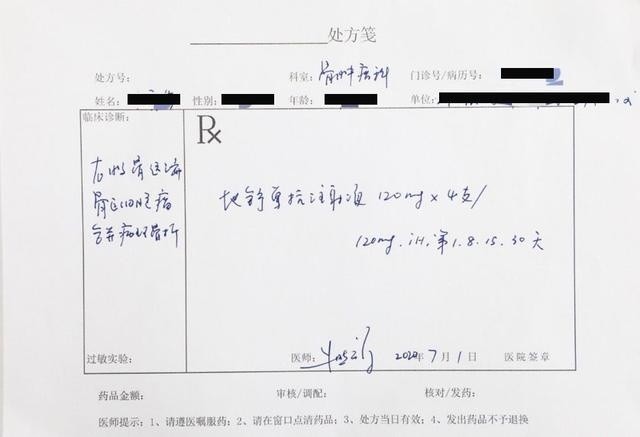 处方笺
处方号: 科室: 骨肿瘤科 门诊号/病历号:
姓名: 性别: 年龄: 单位:
临床诊断: Rx
右 骨远端
骨巨细胞瘤
合并病理骨折
地舒单抗注射液 120mg × 4支/
120mg. iH. 第1.8.15.30天
过敏实验: 医师: 2020年7月1日 医院签章
药品金额: 审核/调配: 核对/发药:
医师提示: 1、请遵医嘱服药; 2、请在窗口点清药品; 3、处方当日有效; 4、发出药品不予退换